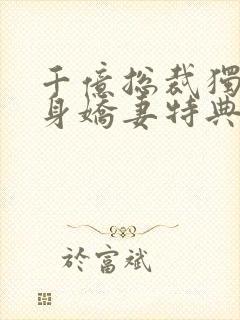 千億总裁獨
身嬌妻特典
於富斌